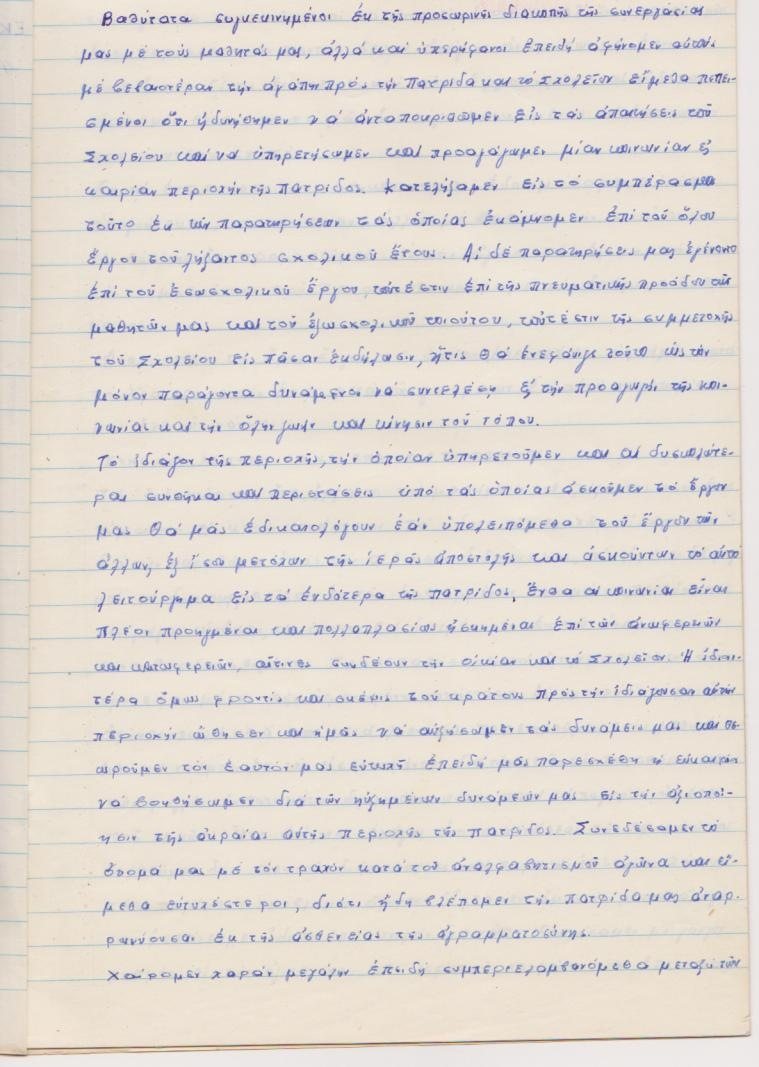 Βαθύτατα συγκεκινημένοι ἐκ τῆς προσωρινῆς διακοπῆς τῆς συνεργασίας
μας μέ τούς μαθητάς μας, ἀλλά καί ὑπερήφανοι ἐπειδή ἀφήνομεν αὐτούς
μέ βεβαιοτέραν τήν ἀγάπην πρός τήν Πατρίδα καί τό Σχολεῖον εἴμεθα πεπει-
σμένοι ὅτι ἠδυνήθημεν νά ἀνταποκριθῶμεν εἰς τάς ἀπαιτήσεις τοῦ
Σχολείου καί νά ὑπηρετήσωμεν καί προαγάγωμεν μίαν κοινωνίαν εἰς
καιρίαν περιοχήν τῆς πατρίδος. Κατελήξαμεν εἰς τό συμπέρασμα
τοῦτο ἐκ τῶν παρατηρήσεων τάς ὁποίας ἐκάμνομεν ἐπί τοῦ ὅλου
ἔργου τοῦ λήξαντος σχολικοῦ ἔτους. Αἱ δέ παρατηρήσεις μας ἐγένοντο
ἐπί τοῦ ἐσωσχολικοῦ ἔργου, τοὐτέστιν ἐπί τῆς πνευματικῆς προόδου τῶν
μαθητῶν μας καί τοῦ ἐξωσχολικοῦ τοιούτου, τοὐτέστιν τῆς συμμετοχῆς
τοῦ Σχολείου εἰς πᾶσαν ἐκδήλωσιν, ἥτις θά ἐνεφάνιζε τοῦτο ὡς τόν
μόνον παράγοντα δυνάμενον νά συντελέσῃ εἰς τήν προαγωγήν τῆς κοι-
νωνίας καί τήν ὅλην ζωήν καί κίνησιν τοῦ τόπου.
Τό ἰδιάζον τῆς περιοχῆς, τήν ὁποίαν ὑπηρετοῦμεν καί αἱ δυσκολώτε-
ραι συνθῆκαι καί περιστάσεις ὑπό τάς ὁποίας ἀσκοῦμεν τό ἔργον
μας θά μᾶς ἐδικαιολόγουν ἐάν ὑπολειπόμεθα τοῦ ἔργου τῶν
ἄλλων, ἐξ ἴσου μετόχων τῆς ἱερᾶς ἀποστολῆς καί ἀσκούντων τό αὐτό
λειτούργημα εἰς τά ἐνδότερα τῆς πατρίδος, ἔνθα αἱ κοινωνίαι εἶναι
πλέον προηγμέναι καί πολλαπλασίως ἠσκημέναι ἐπί τῶν ἀνωφερειῶν
καί κατωφερειῶν, αἵτινες συνδέουν τήν οἰκίαν καί τό Σχολεῖον. Ἡ ἰδιαι-
τέρα ὅμως φροντίς καί σκέψις τοῦ κράτους πρός τήν ἰδιάζουσαν αὐτήν
περιοχήν ὤθησεν καί ἡμᾶς νά αὐξήσωμεν τάς δυνάμεις μας καί θε-
ωροῦμεν τόν ἑαυτόν μας εὐτυχῆ ἐπειδή μᾶς παρεσχέθη ἡ εὐκαιρία
νά βοηθήσωμεν διά τῶν ηὐξημένων δυνάμεών μας εἰς τήν ἀξιοποί-
ησιν τῆς ἀκραίας αὐτῆς περιοχῆς τῆς πατρίδος. Συνεδέσαμεν τό
ὄνομά μας μέ τόν τραχύν κατά τοῦ ἀναλφαβητισμοῦ ἀγῶνα καί εἴ-
μεθα εὐτυχέστεροι, διότι ἤδη βλέπομεν τήν πατρίδα μας ἀναρ-
ρωνύουσαν ἐκ τῆς ἀσθενείας τῆς ἀγραμματοσύνης.
Χαίρομεν χαράν μεγάλην ἐπειδή συμπεριελαμβανόμεθα μεταξύ τῶν